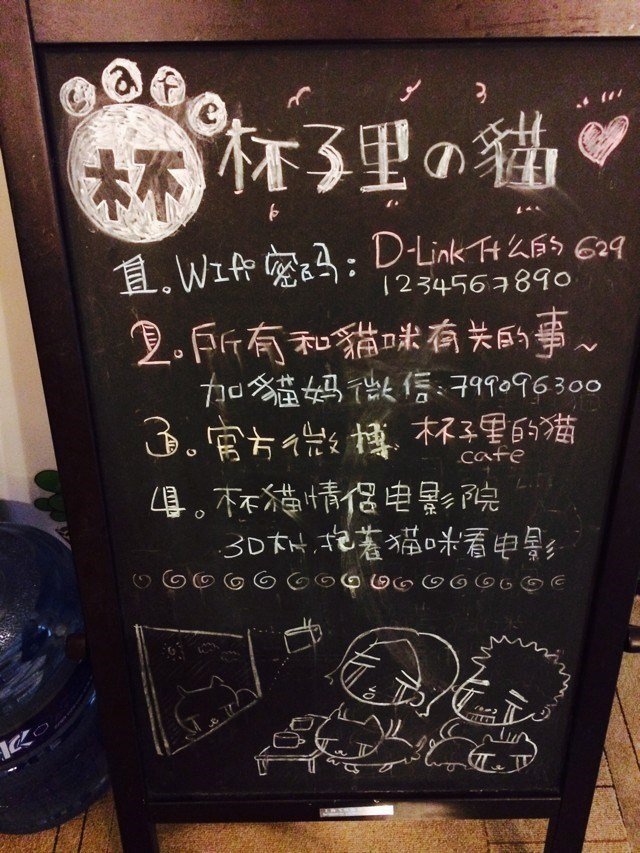 cafe
杯
杯子里の貓
1. Wifi密码: D-Link什么的 629
1234567890
2. 所有和貓咪有关的事~
加貓妈微信:799096300
3. 官方微博 杯子里的猫
cafe
4. 杯猫情侣电影院
3D大片,抱著猫咪看电影